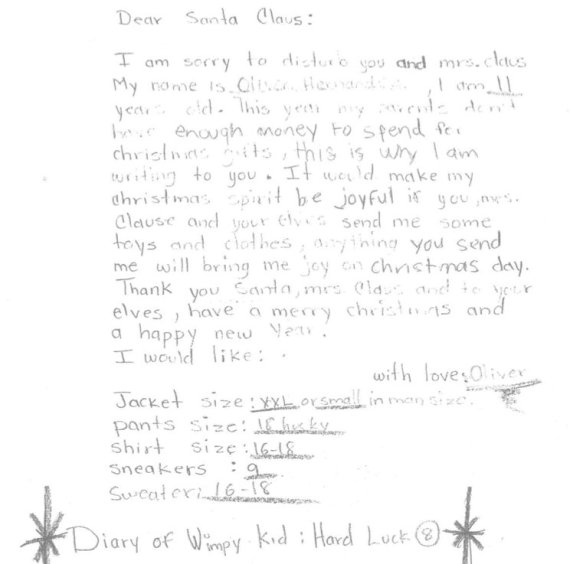 Dear Santa Claus:
I am sorry to disturb you and mrs.claus
My name is Oliver Hernandez , I am 11
years old. This year my parents don't
have enough money to spend for
christmas gifts, this is why I am
writing to you. It would make my
christmas spirit be joyful if you, mrs.
Clause and your elves send me some
toys and clothes, anything you send
me will bring me joy on christmas day.
Thank you Santa, mrs. Claus and to your
elves, have a merry christmas and
a happy new Year.
I would like:
with love: Oliver
Jacket size: XXL or small in man size.
pants size: 18 husky
shirt size: 16-18
sneakers : 9
Sweater: 16-18
Diary of Wimpy Kid : Hard Luck 8